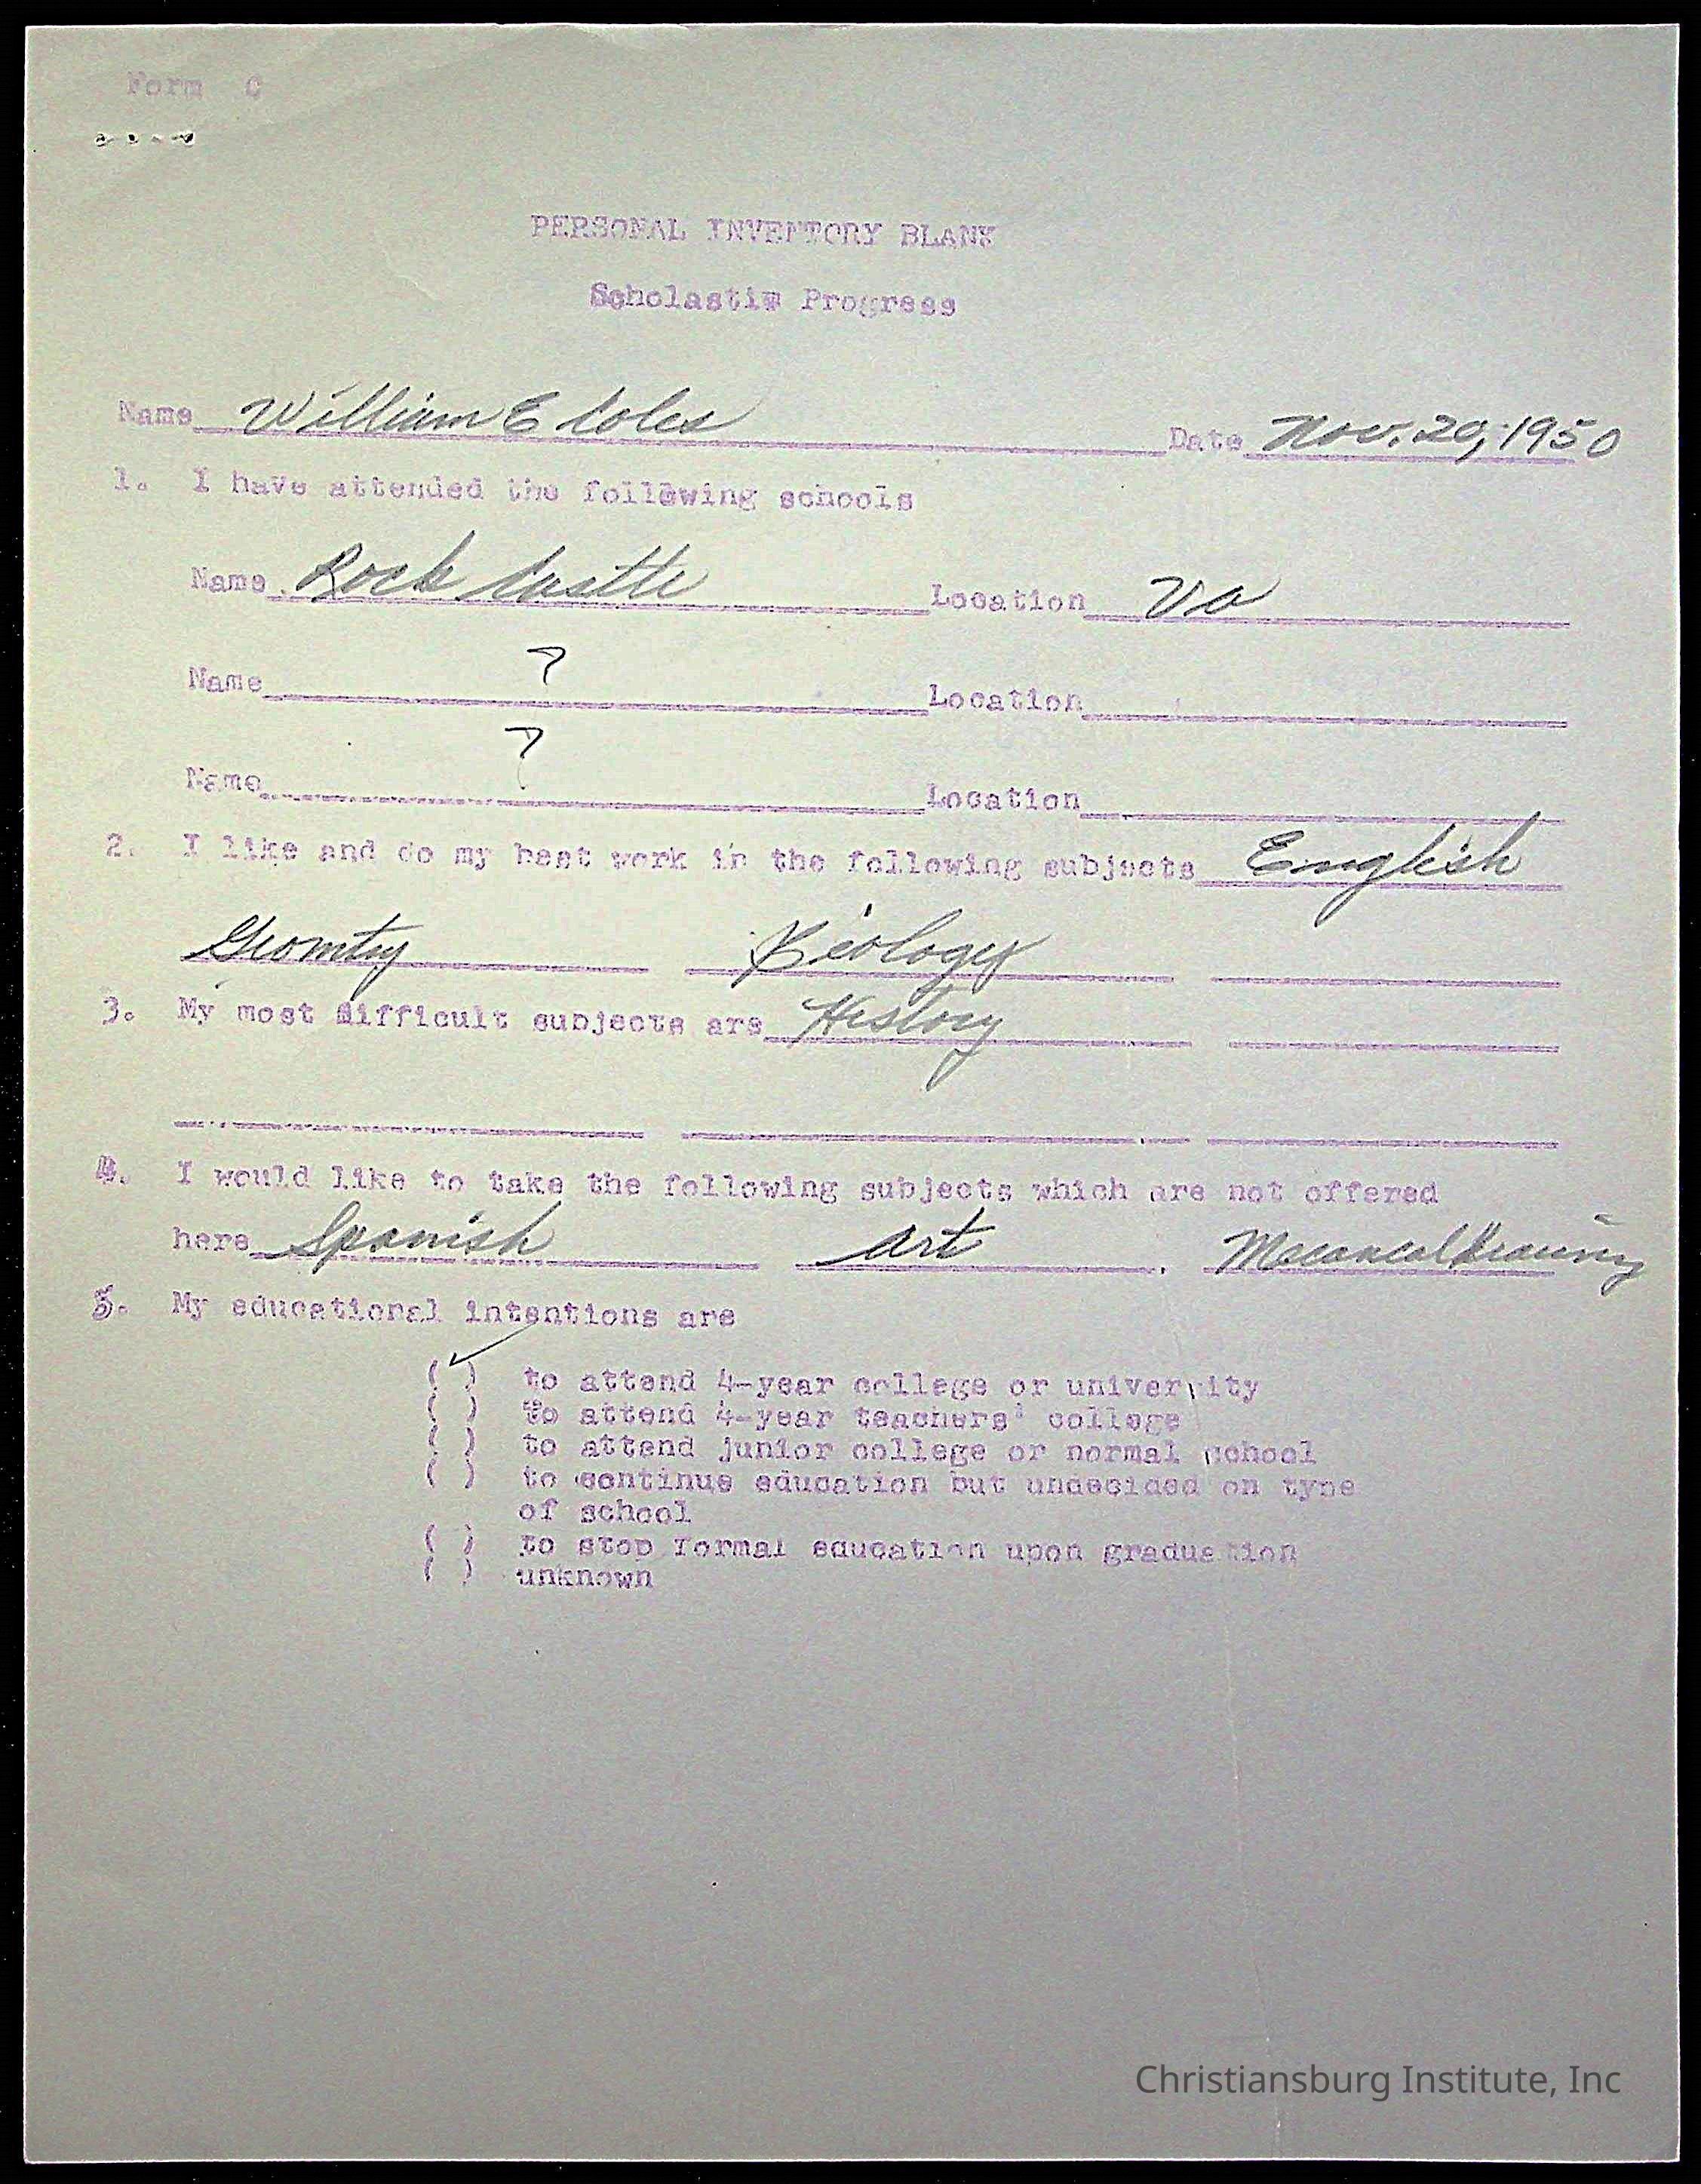 Form C
PERSONAL INVENTORY BLANK
Scholastic Progress
Name William E Coles Date Nov. 20, 1950
1. I have attended the following schools
Name Rock Castle Location Va
Name ? Location
Name ? Location
2. I like and do my best work in the following subjects English
Geomtry Biology
3. My most difficult subjects are History
4. I would like to take the following subjects which are not offered
here Spanish Art Mecancal Drawing
5. My educational intentions are
(✓) to attend 4-year college or university
( ) to attend 4-year teachers' college
( ) to attend junior college or normal school
( ) to continue education but undecided on type
of school
( ) to stop formal education upon graduation
( ) unknown
Christiansburg Institute, Inc